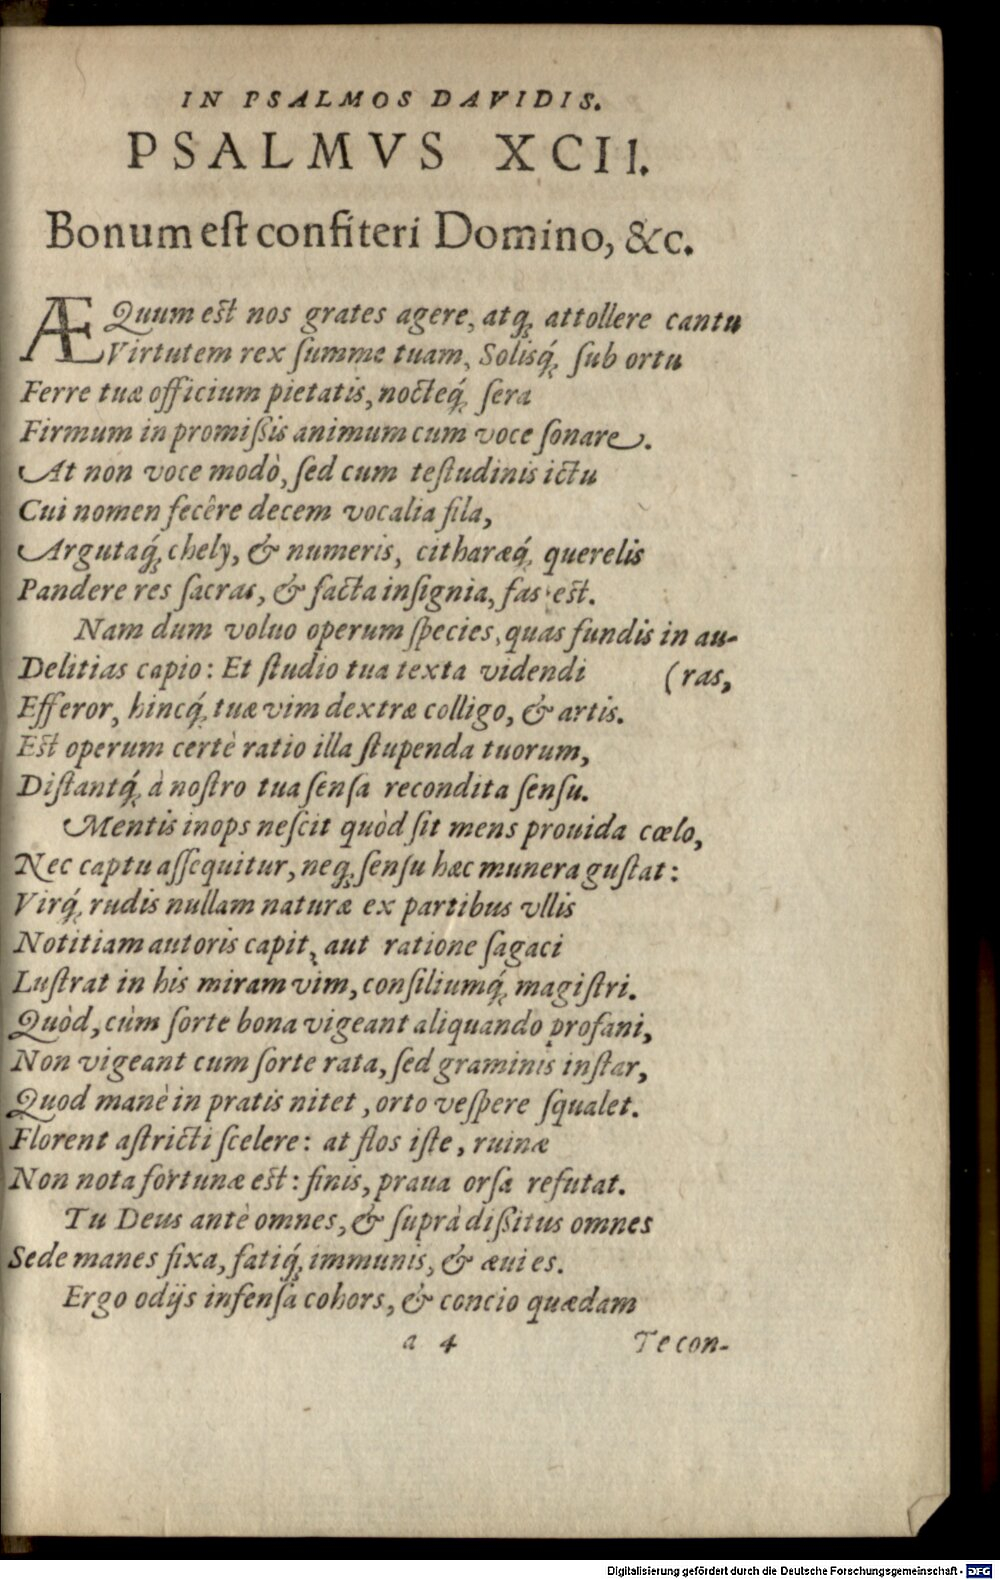 IN PSALMOS DAVIDIS.
PSALMVS XCII.
Bonum eſt confiteri Domino, &c.
ÆQuum est nos grates agere, atq́; attollere cantu
Virtutem rex ſumme tuam, Solisq́; ſub ortu
Ferre tuæ officium pietatis, nocteq́; ſera
Firmum in promißis animum cum voce ſonare.
At non voce modò, ſed cum teſtudinis ictu
Cui nomen fecêre decem vocalia fila,
Argutaq́; chely, & numeris, citharæq́; querelis
Pandere res ſacras, & facta inſignia, fas est.
Nam dum voluo operum ſpecies, quas fundis in au-
Delitias capio: Et ſtudio tua texta videndi (ras,
Efferor, hincq́; tuæ vim dextræ colligo, & artis.
Est operum certè ratio illa ſtupenda tuorum,
Diſtantq́; à noſtro tua ſenſa recondita ſenſu.
Mentis inops neſcit quòd ſit mens prouida cœlo,
Nec captu aſſequitur, neq; ſenſu hæc munera guſtat:
Virq́; rudis nullam naturæ ex partibus vllis
Notitiam autoris capit, aut ratione ſagaci
Luſtrat in his miram vim, conſiliumq́; magiſtri.
Quòd, cùm ſorte bona vigeant aliquando profani,
Non vigeant cum ſorte rata, ſed graminis inſtar,
Quod manè in pratis nitet, orto veſpere ſqualet.
Florent aſtricti ſcelere: at flos iſte, ruinæ
Non nota fortunæ est: finis, praua orſa refutat.
Tu Deus antè omnes, & ſuprà dißitus omnes
Sede manes fixa, fatiq́; immunis, & æui es.
Ergo odijs infenſa cohors, & concio quædam
a 4 Te con-
Digitalisierung gefördert durch die Deutsche Forschungsgemeinschaft - DFG